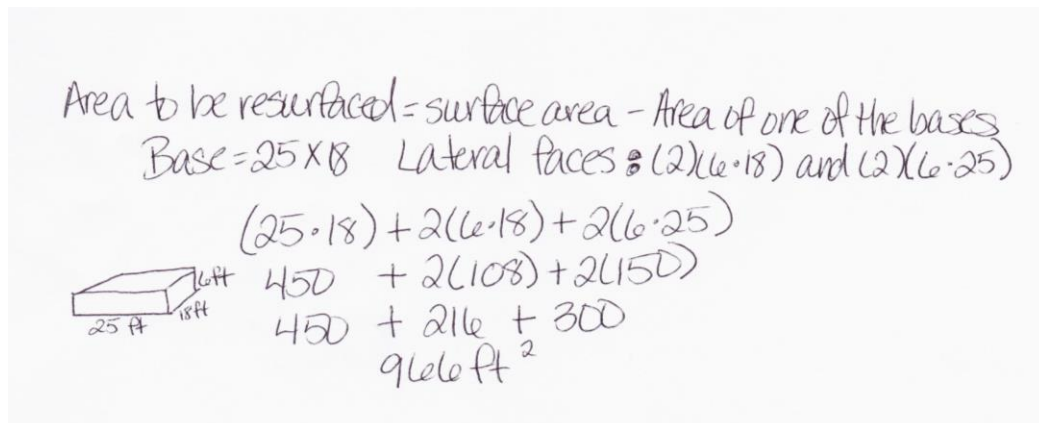 Area to be resurfaced = surface area - Area of one of the bases
Base = 25 X 18 Lateral faces : (2)(6·18) and (2)(6·25)
(25·18) + 2(6·18) + 2(6·25)
6ft 450 + 2(108) + 2(150)
25 ft 18ft 450 + 216 + 300
966 ft²